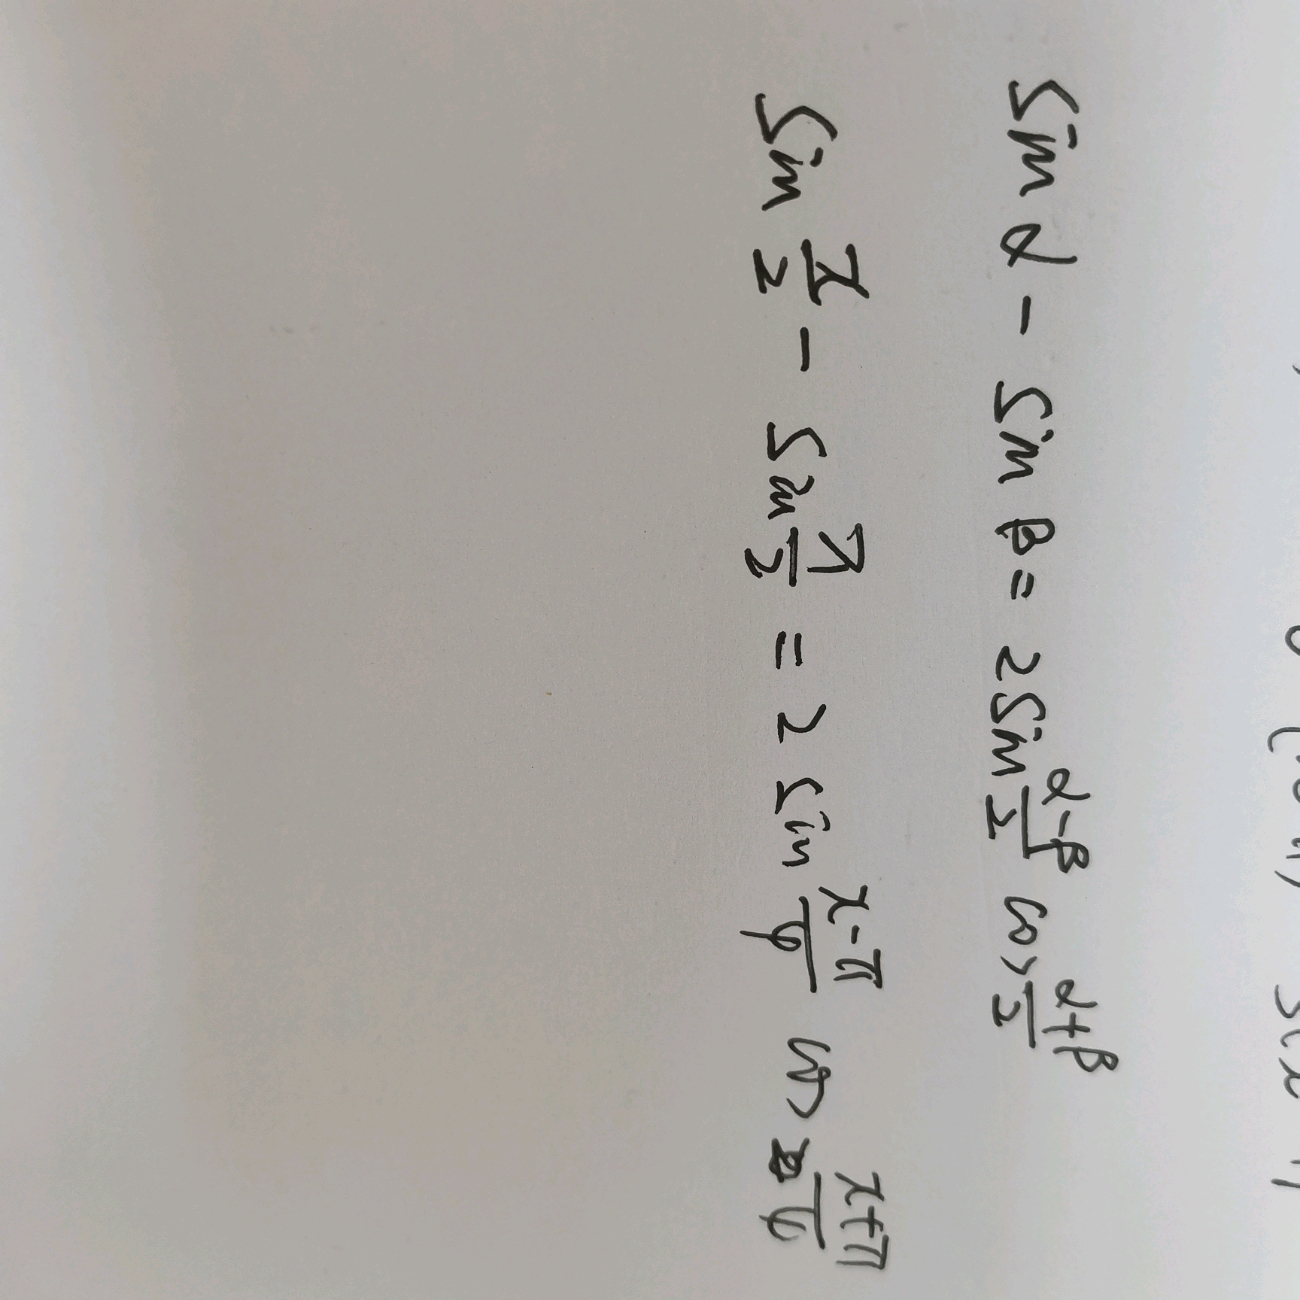 sin α - sin β = 2 sin (α-β)/2 cos (α+β)/2
sin x/2 - sin π/2 = 2 sin (x-π)/4 cos (x+π)/4